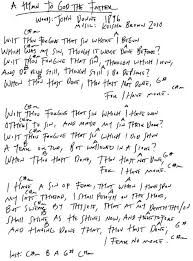 A HYMN TO GOD THE FATHER
WORDS: JOHN DONNE
MUSIC: BROWN 2010
C#m
WILT THOU FORGIVE THAT SIN WHERE I BEGUN
WHICH WAS MY SIN, THOUGH IT WERE DONE BEFORE?
WILT THOU FORGIVE THAT SIN, THROUGH WHICH I RUN,
AND DO RUN STILL, THOUGH STILL I DO DEPLORE?
WHEN THOU HAST DONE, THOU HAST NOT DONE,
FOR I HAVE MORE. C#m
WILT THOU FORGIVE THAT SIN WHICH I HAVE WON
OTHERS TO SIN, AND MADE MY SIN THEIR DOOR?
WILT THOU FORGIVE THAT SIN WHICH I DID SHUN
A YEAR OR TWO, BUT WALLOWED IN A SCORE?
WHEN THOU HAST DONE, THOU HAST NOT DONE,
FOR I HAVE MORE. C#m
I HAVE A SIN OF FEAR, THAT WHEN I HAVE SPUN
MY LAST THREAD, I SHALL PERISH ON THE SHORE;
BUT SWEAR BY THYSELF, THAT AT MY DEATH THY SON
SHALL SHINE AS HE SHINES NOW, AND HERETOFORE
AND HAVING DONE THAT, THOU HAST DONE;
I FEAR NO MORE. C#m
C#m B A G# C#m